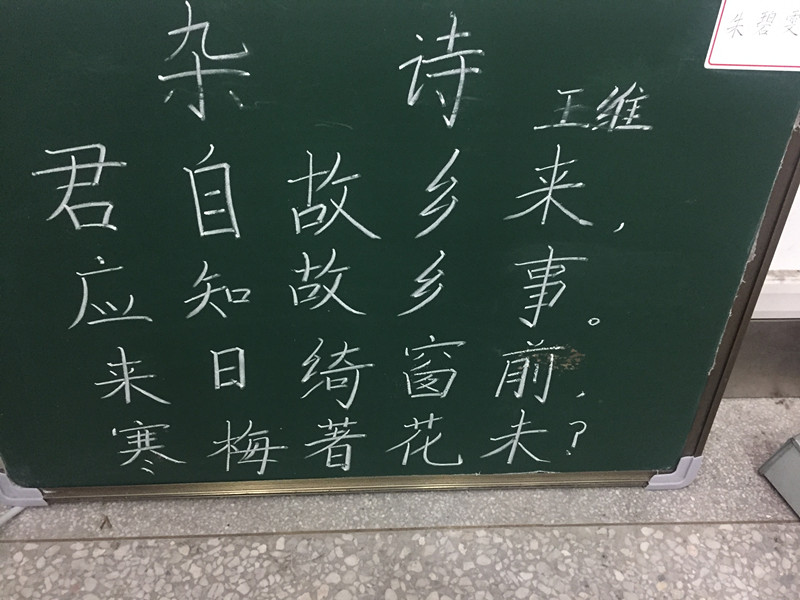 杂诗
王维
君自故乡来，
应知故乡事。
来日绮窗前，
寒梅著花未？
朱碧雯